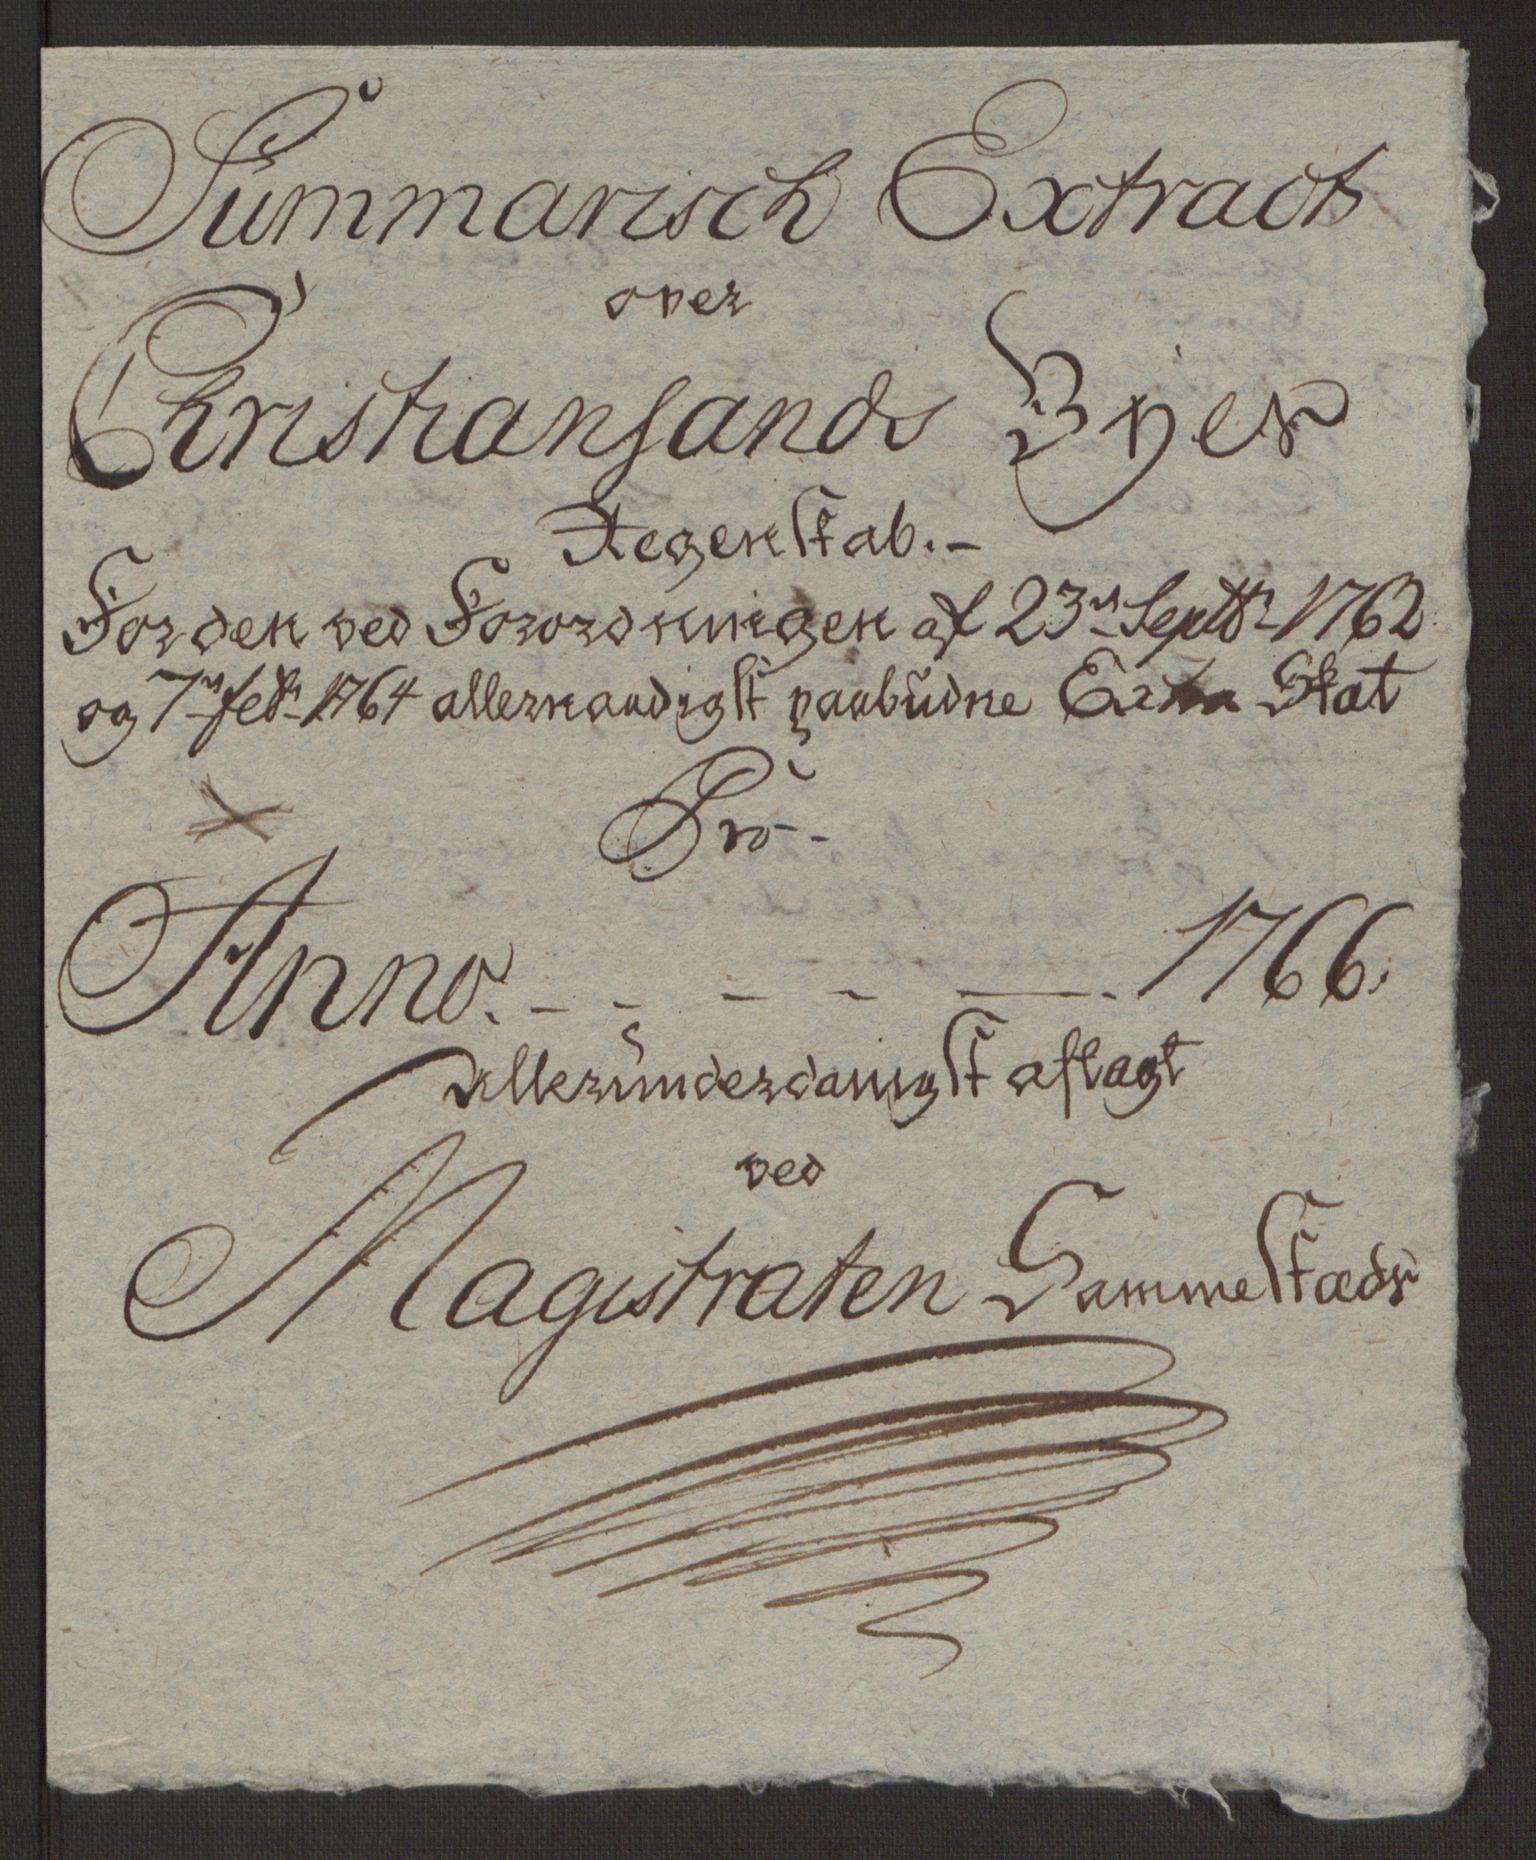 Summarisch Extract
over
Christiansands Byes
Regenskab.-
For den ved Forordningen af 23de Septbr 1762
og 7de febr 1764 allernaadigst paabudne Extra Skat
Pro-
Anno. - - - - -. 1766.
allerunderdanigst aflagt
ved
Magistraten Sammestæds